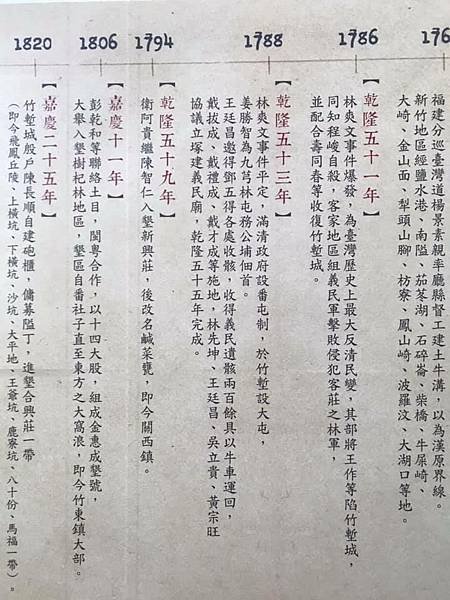 176
福建分巡臺灣道楊景素親率廳縣督工建土牛溝，以為漢原界線。
新竹地區經鹽水港、南隘、茄苳湖、石碎崙、柴橋、牛屎崎、
大崎、金山面、犁頭山腳、枋寮、鳳山崎、波羅汶、大湖口等地。
1786
【乾隆五十一年】
林爽文事件爆發，為臺灣歷史上最大反清民變，其部將王作等陷竹塹城，
同知程峻自殺，客家地區組義民軍擊敗侵犯客莊之林軍，
並配合壽同春等收復竹塹城。
1788
【乾隆五十三年】
林爽文事件平定，滿清政府設番屯制，於竹塹設大屯，
姜勝智為九芎林屯務公埔佃首。
王廷昌邀得鄧五得各處收骸，收得義民遺骸兩百餘具以牛車運回，
戴拔成、戴禮成、戴才成等施地，林先坤、王廷昌、吳立貴、黃宗旺
協議立塚建義民廟，乾隆五十五年完成。
1794
【乾隆五十九年】
衛阿貴繼陳智仁入墾新興莊，後改名鹹菜甕，即今關西鎮。
1806
【嘉慶十一年】
彭乾和等聯絡土目，閩粵合作，以十四大股，組成金惠成墾號，
大舉入墾樹杞林地區，墾區自番社子直至東方之大窩浪，即今竹東鎮大部。
1820
【嘉慶二十五年】
竹塹城殷戶陳長順自建砲櫃，傭募隘丁，進墾合興莊一帶
（即今飛鳳丘陵、上橫坑、下橫坑、沙坑、大平地、王爺坑、鹿寮坑、八十份、馬福一帶）。